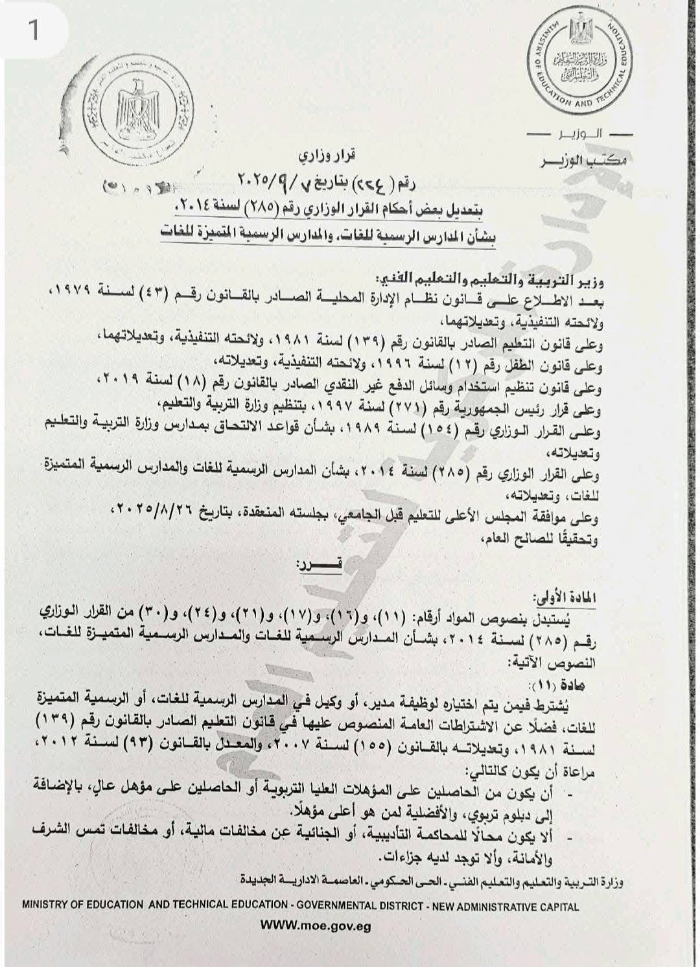 1
MINISTRY OF EDUCATION AND TECHNICAL EDUCATION
الوزير
مكتب الوزير
قرار وزاري
رقم (٢٢٤) بتاريخ ٢٠٢٥/٩/٧
بتعديل بعض أحكام القرار الوزاري رقم (٢٨٥) لسنة ٢٠١٤،
بشأن المدارس الرسمية للغات، والمدارس الرسمية المتميزة للغات
وزير التربية والتعليم والتعليم الفني:
بعد الاطلاع على قانون نظام الإدارة المحلية الصادر بالقانون رقم (٤٣) لسنة ١٩٧٩،
ولائحته التنفيذية، وتعديلاتهما،
وعلى قانون التعليم الصادر بالقانون رقم (١٣٩) لسنة ١٩٨١، ولائحته التنفيذية، وتعديلاتهما،
وعلى قانون الطفل رقم (١٢) لسنة ١٩٩٦، ولائحته التنفيذية، وتعديلاته،
وعلى قانون تنظيم استخدام وسائل الدفع غير النقدي الصادر بالقانون رقم (١٨) لسنة ٢٠١٩،
وعلى قرار رئيس الجمهورية رقم (٢٧١) لسنة ١٩٩٧، بتنظيم وزارة التربية والتعليم،
وعلى القرار الوزاري رقم (١٥٤) لسنة ١٩٨٩، بشأن قواعد الالتحاق بمدارس وزارة التربية والتعليم
وتعديلاته،
وعلى القرار الوزاري رقم (٢٨٥) لسنة ٢٠١٤، بشأن المدارس الرسمية للغات والمدارس الرسمية المتميزة
للغات، وتعديلاته،
وعلى موافقة المجلس الأعلى للتعليم قبل الجامعي، بجلسته المنعقدة، بتاريخ ٢٠٢٥/٨/٢٦،
وتحقيقًا للصالح العام،
قـــرر:
المادة الأولى:
يُستبدل بنصوص المواد أرقام: (١١)، و(١٦)، و(١٧)، و(٢١)، و(٢٤)، و(٣٠) من القرار الوزاري
رقم (٢٨٥) لسنة ٢٠١٤، بشأن المدارس الرسمية للغات والمدارس الرسمية المتميزة للغات،
النصوص الآتية:
مادة (١١):
يُشترط فيمن يتم اختياره لوظيفة مدير، أو وكيل في المدارس الرسمية للغات، أو الرسمية المتميزة
للغات، فضلًا عن الاشتراطات العامة المنصوص عليها في قانون التعليم الصادر بالقانون رقم (١٣٩)
لسنة ١٩٨١، وتعديلاته بالقانون (١٥٥) لسنة ٢٠٠٧، والمعدل بالقانون (٩٣) لسنة ٢٠١٢،
مراعاة أن يكون كالتالي:
- أن يكون من الحاصلين على المؤهلات العليا التربوية أو الحاصلين على مؤهل عالٍ، بالإضافة
إلى دبلوم تربوي، والأفضلية لمن هو أعلى مؤهلًا.
- ألا يكون محالًا للمحاكمة التأديبية، أو الجنائية عن مخالفات مالية، أو مخالفات تمس الشرف
والأمانة، وألا توجد لديه جزاءات.
وزارة التربية والتعليم والتعليم الفني - الحى الحكومي - العاصمة الادارية الجديدة
MINISTRY OF EDUCATION AND TECHNICAL EDUCATION - GOVERNMENTAL DISTRICT - NEW ADMINISTRATIVE CAPITAL
WWW.moe.gov.eg